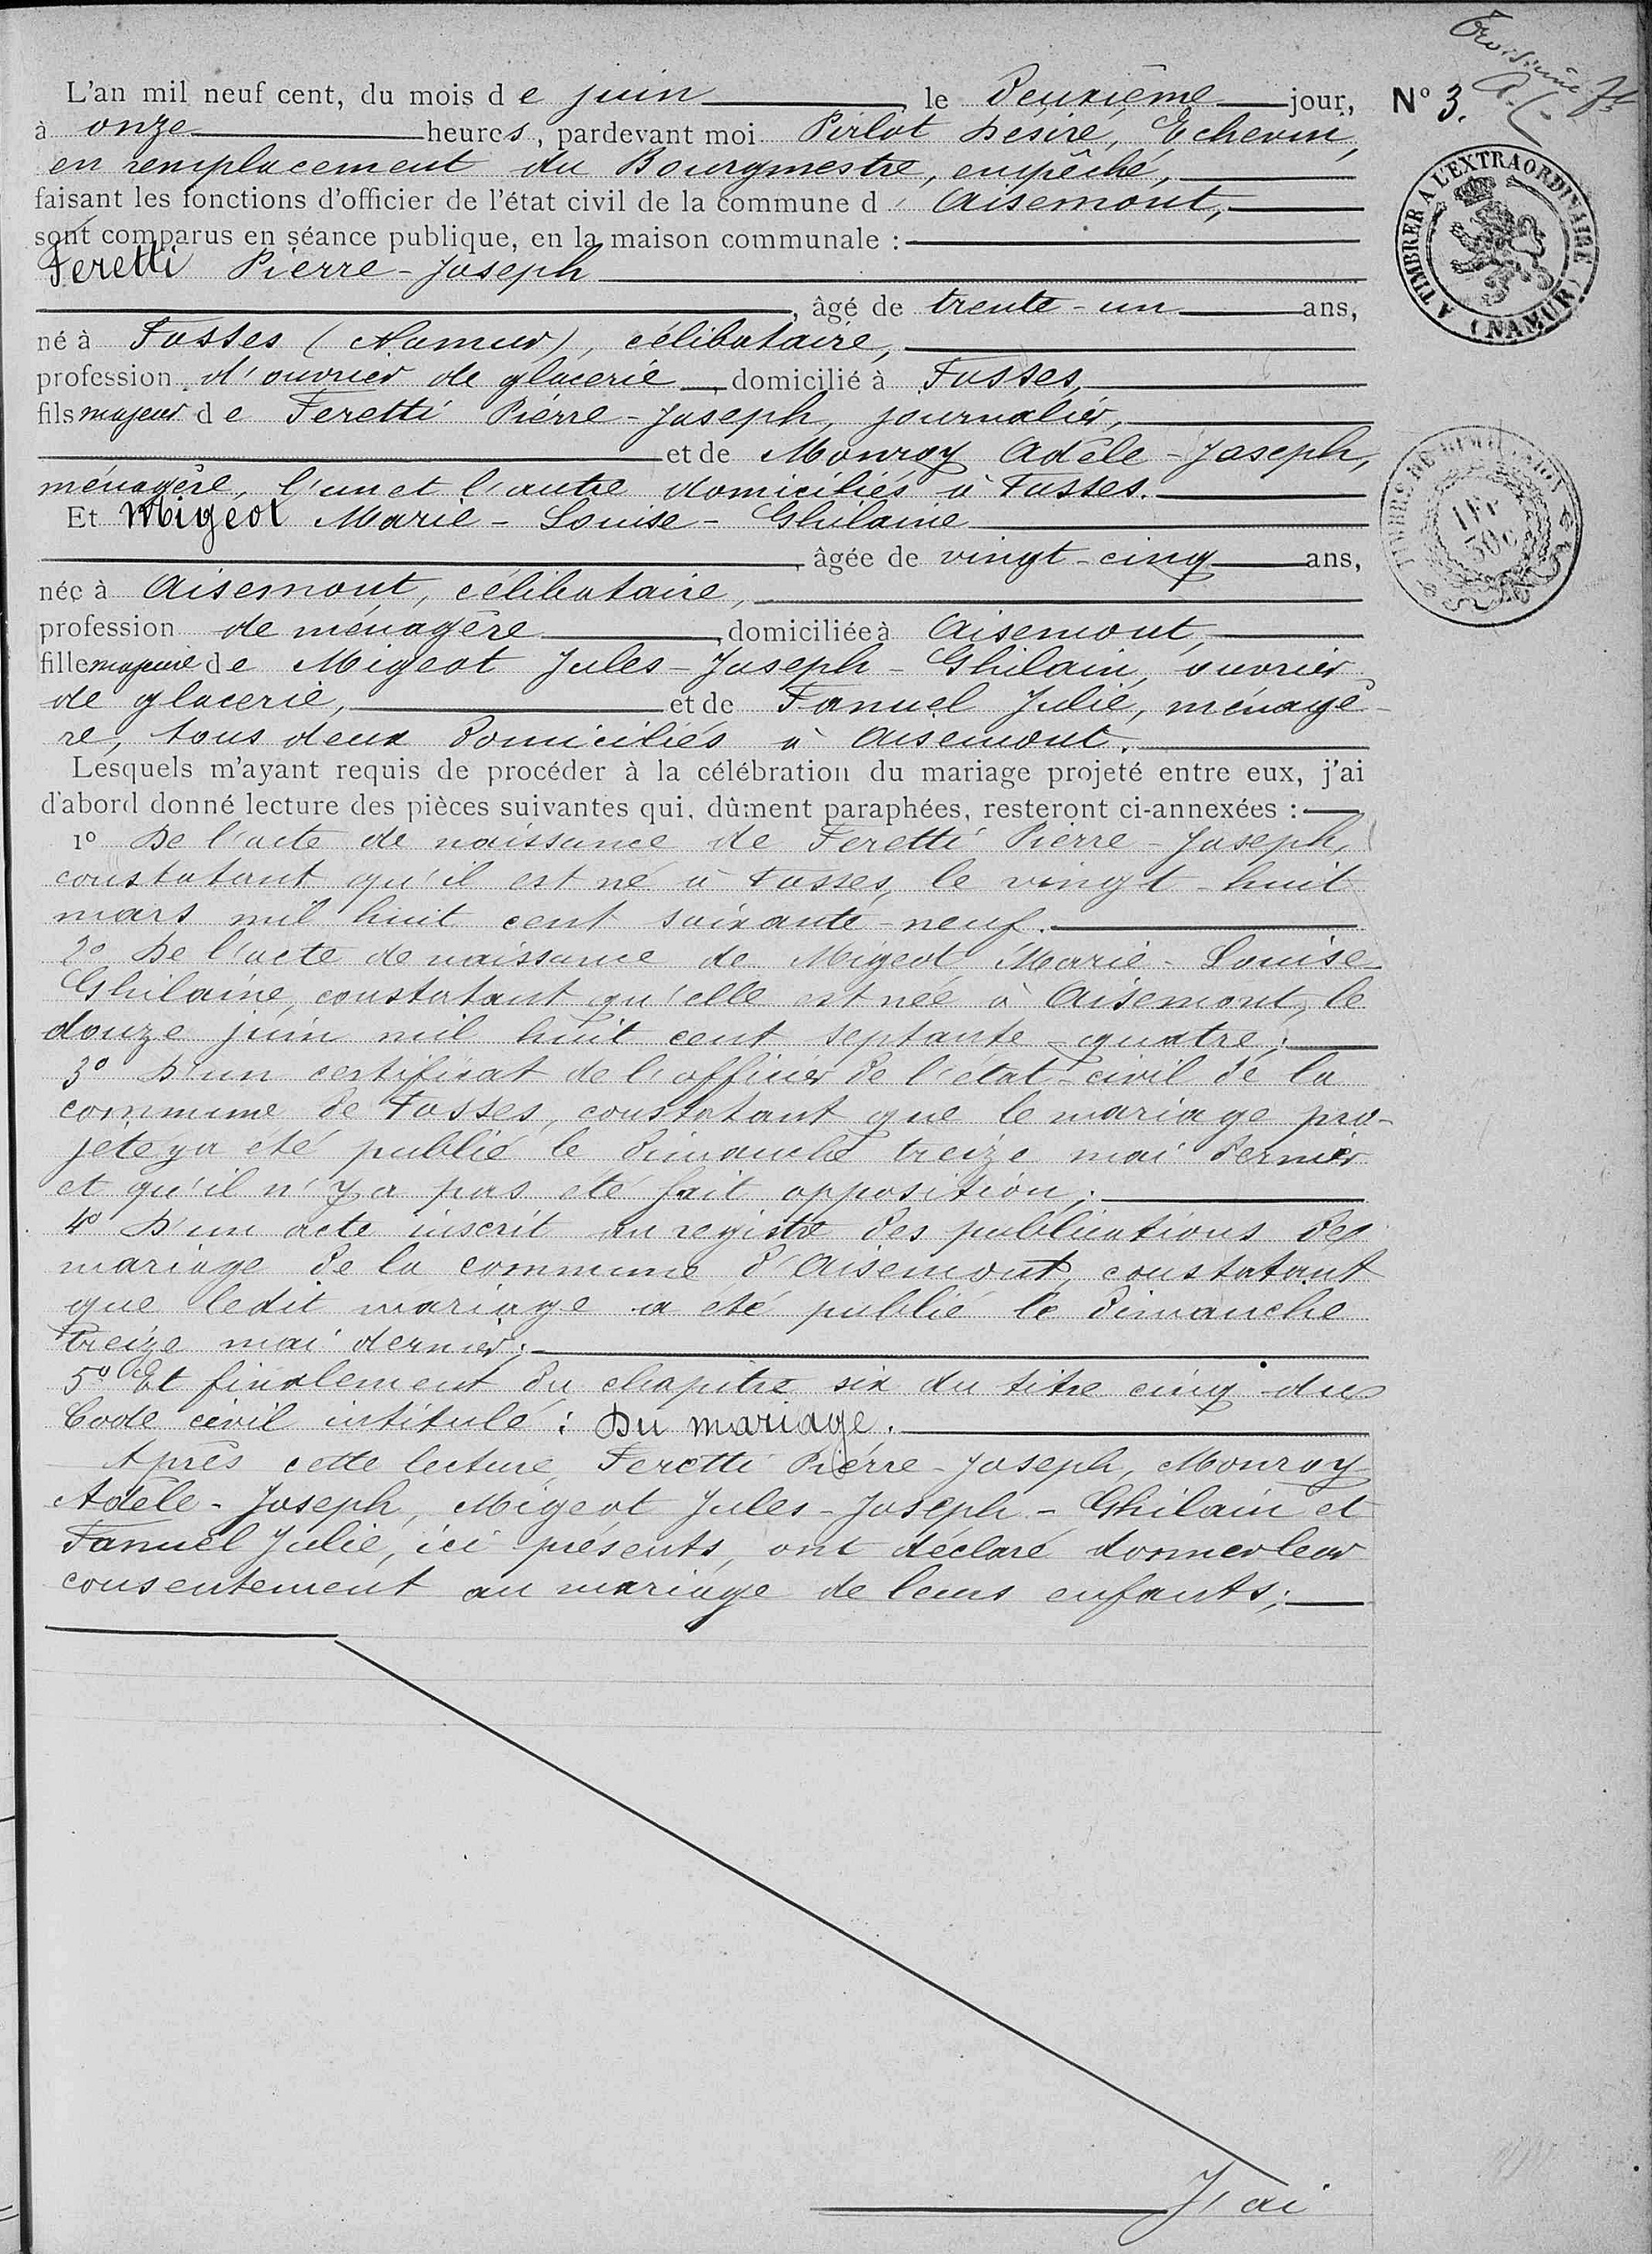 L'an mil neuf cent, du mois de juin, le deuxième jour, N° 3.
à onze heures, pardevant moi Pirlot Désiré, Echevin,
en remplacement du Bourgmestre, empêché,
faisant les fonctions d'officier de l'état civil de la commune d'Aisemont,
sont comparus en séance publique, en la maison communale :
Feretti Pierre-Joseph
, âgé de trente-un ans,
né à Fosses (Namur), célibataire,
profession d'ouvrier de glacerie, domicilié à Fosses,
fils majeur de Feretti Pierre-Joseph, journalier,
et de Monroy Adèle-Joseph,
ménagère, l'un et l'autre domiciliés à Fosses.
Et Migeot Marie-Louise-Ghilaine
, âgée de vingt-cinq ans,
née à Aisemont, célibataire,
profession de ménagère, domiciliée à Aisemont,
fille majeure de Migeot Jules-Joseph-Ghilain, ouvrier
de glacerie, et de Fanuel Julie, ménagè-
re, tous deux domiciliés à Aisemont.
Lesquels m'ayant requis de procéder à la célébration du mariage projeté entre eux, j'ai
d'abord donné lecture des pièces suivantes qui, dûment paraphées, resteront ci-annexées :
1° De l'acte de naissance de Feretti Pierre-Joseph,
constatant qu'il est né à Fosses, le vingt-huit
mars mil huit cent soixante-neuf.
2° De l'acte de naissance de Migeot Marie-Louise
Ghilaine, constatant qu'elle est née à Aisemont, le
douze juin mil huit cent septante-quatre;
3° D'un certificat de l'officier de l'état-civil de la
commune de Fosses, constatant que le mariage pro-
jeté y a été publié le dimanche treize mai dernier
et qu'il n'y a pas été fait opposition;
4° D'un acte inscrit au registre des publications de
mariage de la commune d'Aisemont, constatant
que ledit mariage a été publié le dimanche
treize mai dernier;
5° Et finalement du chapitre six du titre cinq du
Code civil intitulé : Du mariage.
Après cette lecture, Feretti Pierre-Joseph, Monroy
Adèle-Joseph, Migeot Jules-Joseph-Ghilain et
Fanuel Julie, ici présents, ont déclaré donner leur
consentement au mariage de leurs enfants;
J'ai
Troisième
A TIMBRER A L'EXTRAORDINAIRE
(NAMUR)
1 FR
30 C